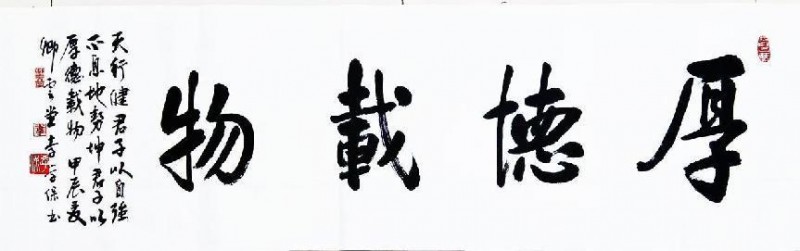 厚德載物
天行健君子以自強
不息地勢坤君子以
厚德載物 甲辰夏
卿云堂